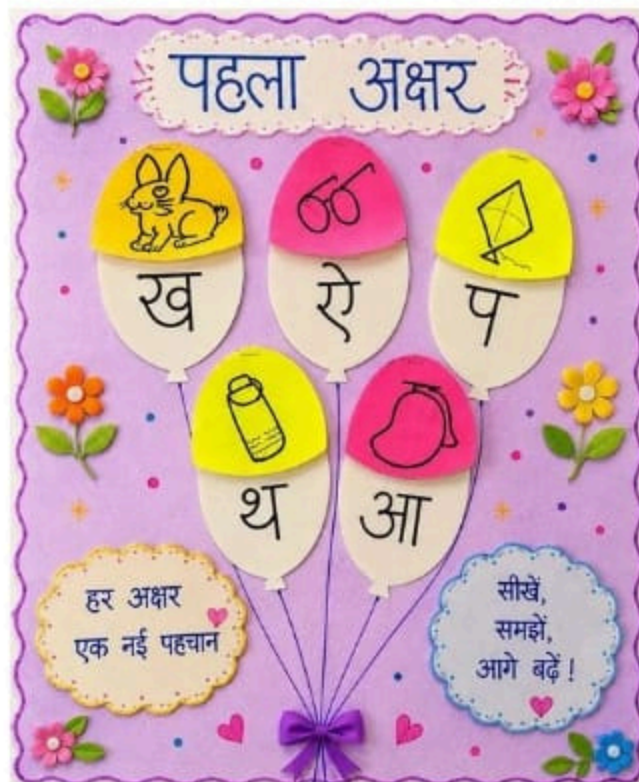 पहला अक्षर
ख
ऐ
प
थ
आ
हर अक्षर
एक नई पहचान
सीखें,
समझें,
आगे बढ़ें !